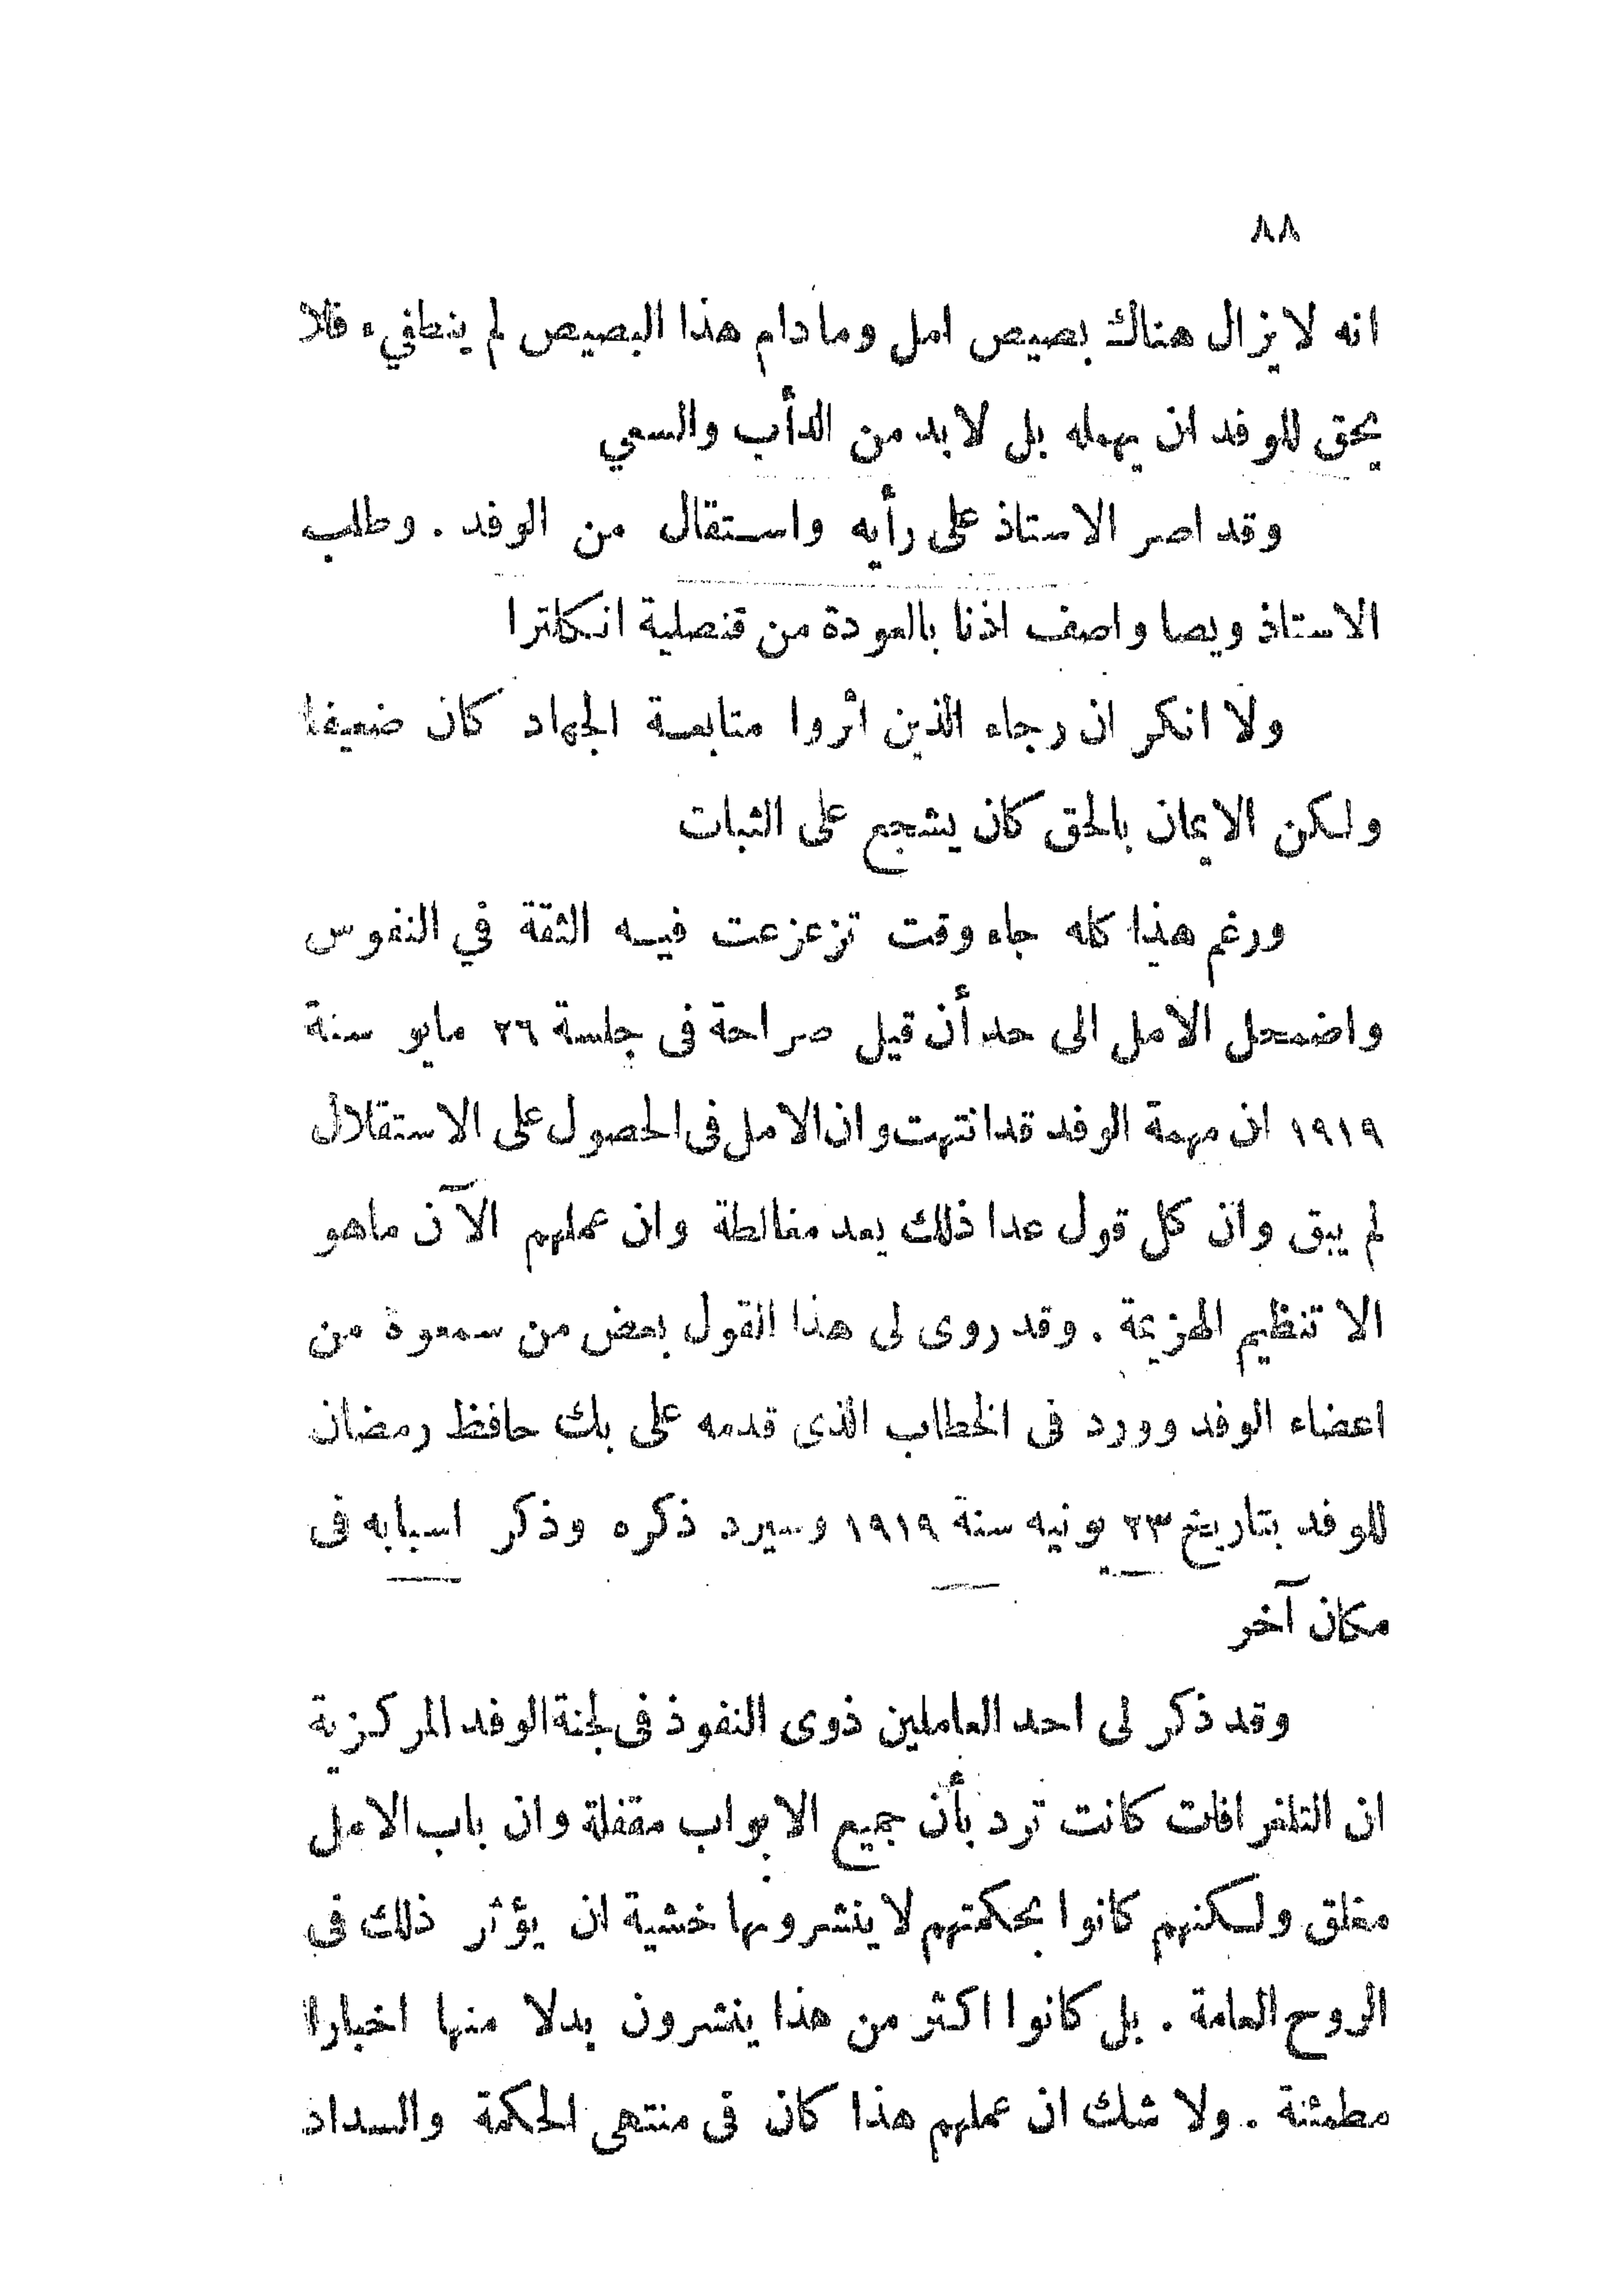 ٨٨
انه لا يزال هناك بصيص امل وما دام هذا البصيص لم ينطفيء فلا
يحق للوفد ان يهمله بل لا بد من الدأب والسعي
وقد اصر الاستاذ على رأيه واستقال من الوفد . وطلب
الاستاذ ويصا واصف اذنا بالعودة من قنصلية انكلترا
ولا انكر ان رجاء الذين اثروا متابعة الجهاد كان ضعيفا
ولكن الايمان بالحق كان يشجع على الثبات
ورغم هذا كله جاء وقت تزعزعت فيه الثقة في النفوس
واضمحل الامل الى حد أن قيل صراحة فى جلسة ٢٦ مايو سنة
١٩١٩ ان مهمة الوفد قد انتهت وان الامل فى الحصول على الاستقلال
لم يبق وان كل قول عدا ذلك يعد مغالطة وان عملهم الآن ماهو
الا تنظيم الهزيمة . وقد روى لى هذا القول بعض من سمعوة من
اعضاء الوفد وورد فى الخطاب الذى قدمه على بك حافظ رمضان
للوفد بتاريخ ٢٣ يونيه سنة ١٩١٩ وسيرد ذكره وذكر اسبابه فى
مكان آخر
وقد ذكر لى احد العاملين ذوى النفوذ فى لجنة الوفد المركزية
ان التلغرافات كانت ترد بأن جميع الابواب مقفلة وان باب الامل
مغلق ولكنهم كانوا بحكمتهم لا ينشرونها خشية ان يؤثر ذلك فى
الروح العامة . بل كانوا اكثر من هذا ينشرون بدلا منها اخبارا
مطمئنة . ولا شك ان عملهم هذا كان فى منتهى الحكمة والسداد